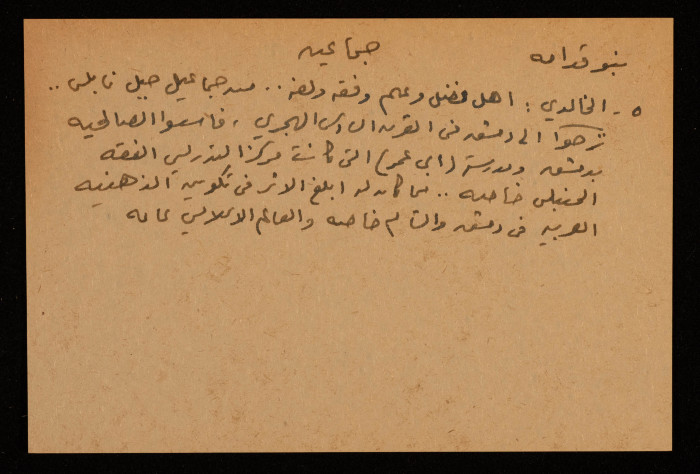 بنو قدامه
جماعيه
٥ - الخالدي : اهل فضل وعلم وفقه ولغه .. من جماعيل جبل نابلس ..
نزحوا الى دمشق في القرن السادس الهجري ، فأسسوا الصالحيه
بدمشق ومدرسة (ابي عمر) التي كانت مركزا لتدريس الفقه
الحنبلي خاصه .. مما كان له ابلغ الاثر في تكوين الذهنيه
العربيه في دمشق والشام خاصه والعالم الاسلامي عامه